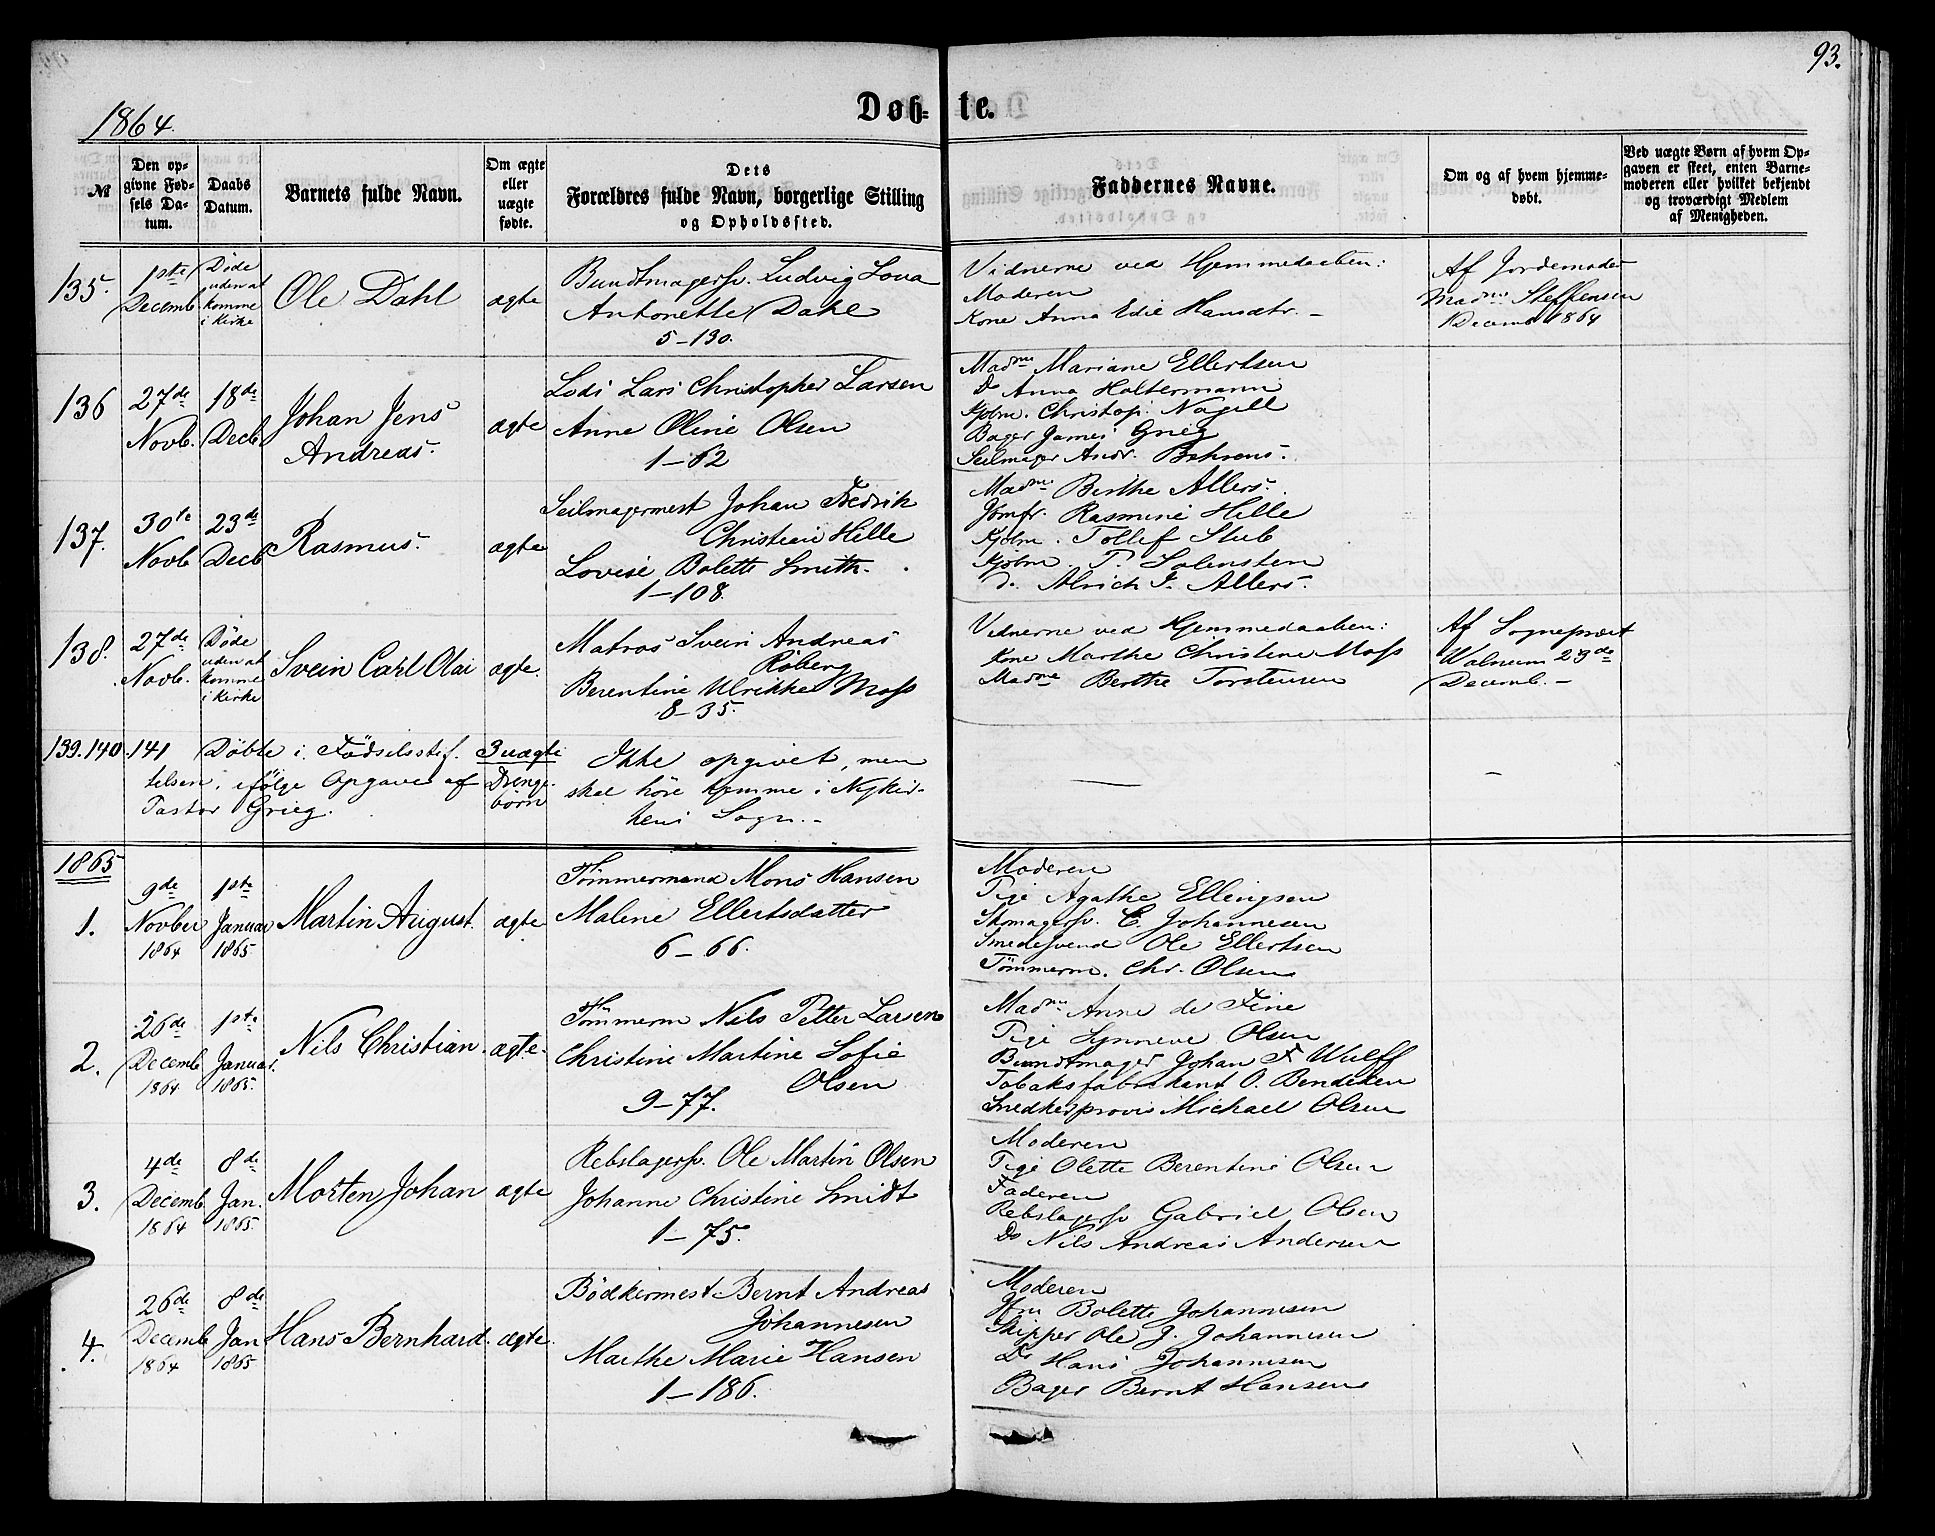 93.
1864.
Døb= te.
№
Den op-
givne Fød-
sels Da-
tum.
Daabs
Datum.
Barnets fulde Navn.
Om ægte
eller
uægte
fødte.
Dets
Forældres fulde Navn, borgerlige Stilling
og Opholdssted.
Faddernes Navne.
Om og af hvem hjemme-
døbt.
Ved uægte Børn af hvem Op-
gaven er skeet, enten Barne-
moderen eller hvilket bekjendt
og troværdigt Medlem
af Menigheden.
135.
1ste
Decemb.
Døde
uden at
komme
i Kirke
Ole Dahl
ægte
Bundtmagersv. Ludvig Lova
Antonette Dahl
5-130.
Vidnerne ved Hjemmedaaben:
Moderen
Kone Anna Edie Hansdtr. -
Af Jordemoder
Madme Steffensen
1 Decemb 1864
136
27de
Novb.
18de
Decb
Johan Jens
Andreas.
ægte
Lods Lars Christopher Larsen
Anne Oline Olsen
1-62
Madme Mariane Ellertsen
Do Anna Holtermann
Kjøbm. Christop. Nagell
Bager James Grieg
Seilmager Andr. Behrens.
137.
30te
Novb
23de
Decb
Rasmus.
ægte
Seilmagermest Johan Fredrik
Christian Hille
Lovise Bolette Smith.
1-108.
Madme Berthe Allers.
Jomfr. Rasmine Hille
Kjøbm. Tollef Stub
Kjøbm. P. Solensten
D. Alrich J. Allers.
138.
27de
Novb.
Døde
uden at
komme
i Kirke
Svein Carl Olai
ægte.
Matros Svein Andreas
Røberg
Berentine Ulrikke Moss
8-35.
Vidnerne ved Hjemmedaaben:
Kone Marthe Christine Moss
Madme Berthe Torstensen
Af Sognepræst
Walnum 23de
Decemb. -
139. 140. 141 Døbte i Födselsstif.
telsen, ifölge Opgave af
Pastor Grieg.
3 uægte
Drenge-
børn
Ikke opgivet, men
skal høre hjemme i Nykir-
kens Sogn. -
1865
1.
9de
Novber
1864
1ste
Januar
1865.
Martin August.
ægte
Tømmermand Mons Hansen
Malene Ellertsdatter
6-66.
Moderen
Pige Agathe Ellingsen
Skomagersv. C. Johannesen
Smedesvend Ole Ellertsen
Tömmerm. Chr. Olsen
2.
26de
Decemb
1864
1ste
Januar.
1865.
Nils Christian.
ægte.
Tømmerm Nils Petter Larsen
Christine Martine Sofie
Olsen
9-77.
Madme Anne de Fine
Pige Synneve Olsen
Bundtmager Johan F Wulff
Tobaksfabrikant O. Bendixen
Snedker provis Michael Olsen
3.
4de
Decemb
1864
8de
Jan.
1865.
Morten Johan
ægte
Rebslagersv. Ole Martin Olsen
Johanne Christine Smidt
1-75.
Moderen
Pige Olette Berentine Olsen
Faderen
Rebslagersv Gabriel Olsen
Do Nils Andreas Andersen
4.
26de
Decemb
1864
8de
Jan
1865
Hans Bernhard.
ægte.
Bödkermest Bernt Andreas
Johannesen
Marthe Marie Hansen
1-186.
Moderen
Jfru Bolette Johannesen
Skipper Ole J. Johannesen
Do Hans Johannesen
Bager Bernt Hansen